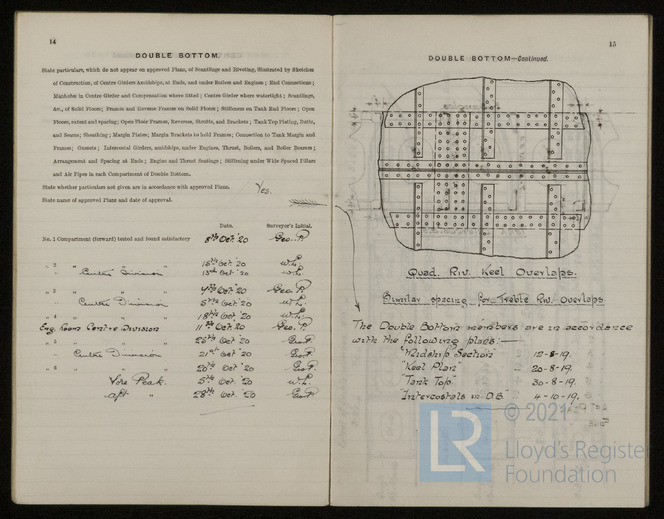 14
DOUBLE BOTTOM.
State particulars, which do not appear on approved Plans, of Scantlings and Riveting, illustrated by Sketches
of Construction, of Centre Girders Amidships, at Ends, and under Boilers and Engines; End Connections;
Manholes in Centre Girder and Compensation where fitted; Centre Girder where watertight; Scantlings,
&c., of Solid Floors; Frames and Reverse Frames on Solid Floors; Stiffeners on Tank End Floors; Open
Floors, extent and spacing; Open Floor Frames, Reverses, Struts, and Brackets; Tank Top Plating, Butts,
and Seams; Sheathing; Margin Plates; Margin Brackets to hold Frames; Connection to Tank Margin and
Frames; Gussets; Intercostal Girders, amidships, under Engines, Thrust, Boilers, and Boiler Bearers;
Arrangement and Spacing at Ends; Engine and Thrust Seatings; Stiffening under Wide Spaced Pillars
and Air Pipes in each Compartment of Double Bottom.
State whether particulars not given are in accordance with approved Plans. Yes.
State name of approved Plans and date of approval.
Date. Surveyor's Initial.
No. 1 Compartment (forward) tested and found satisfactory 8th Oct '20 Geo. P.
" 2 " " 15th Oct '20 W.L.
" Centre Division 13th Oct '20 W.L.
" 3 " " 4th Oct '20 Geo. P.
Centre Division 5th Oct '20 W.L.
" 4 " " 18th Oct '20 W.L.
Eng. Room Centre Division 11th Oct '20 Geo. P.
" 5 " " 25th Oct '20 Geo. P.
" Centre Division 21st Oct '20 Geo. P.
" 6 " " 20th Oct '20 Geo. P.
Fore Peak. 5th Oct '20 W.L.
Aft " 28th Oct '20 Geo. P.
15
DOUBLE BOTTOM—Continued.
Quad. Riv. Keel Overlaps.
Similar spacing for Treble Riv. Overlaps
The Double Bottom members are in accordance
with the following plans:—
"Midship Section" 12-8-19.
"Keel Plan" 20-8-19.
"Tank Top" 30-8-19.
"Intercostals in D.B." 4-10-19.
© 2021
LR
Lloyd's Register
Foundation